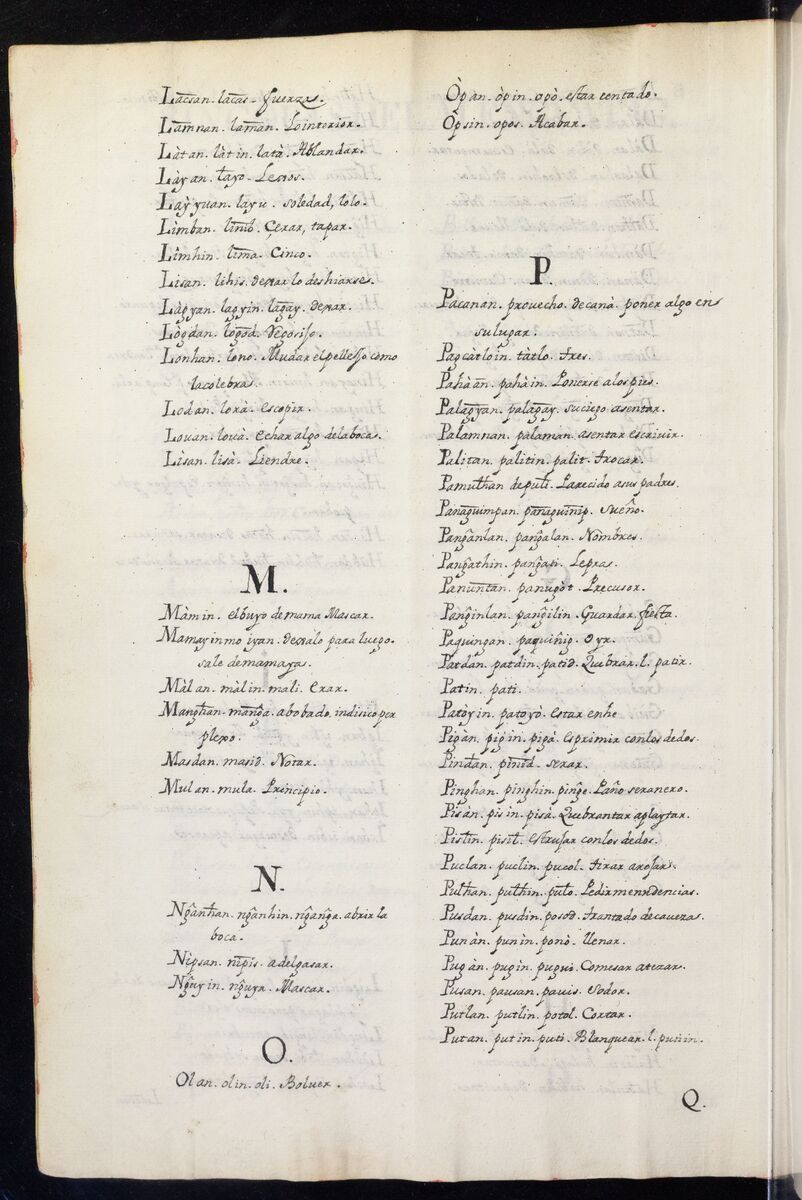 Lacsan. lacas. fuerzas.
Lamnan. laman. Lo interior.
Làtan. làtin. latà. Ablandar.
Làyan. layo. Lexos.
Làyyuan. layu. soledad, solo.
Limban. limib. Çerar, tapar.
Limhin. lima. Cinco.
Lisan. lihis. dexar lo deshiarse.
Làgyan. lagyin. lagay. dexar.
Lògdan. logod.
Lonhan. lono. Mudar el pellejo como
la colebra.
Lodan. lorà. escopir.
Louan. louà. echar algo dela boca.
Lisan. lisà. Liendre.
M.
Màmin. el buyo de mama Mascar.
Mamayinmo iyan. dexalo para luego.
sale demamaya.
Màlan. màlin. mali. errar.
Manghan. manga. abobado, indisico per
plexo.
Masdan. masid. Notar.
Mulan. mula. Principio.
N.
Ngãnhan. ngãnhin. ngãnga. abrir la
boca.
Nipsan. nipis. adelgasar.
Ngũyin. ngũya. Mascar.
O.
Olan. olin. oli. Boluer.
Òpan. òpin. opò. estar centado.
Opsin. opos. Acabar.
P.
Pacanan. provecho. decanà. poner algo en
su lugar.
Pagcàtloin. tatlo. tres.
Pahàan. pahàin. Ponerse alos pies.
Palagyan. palagay. suciego asentar.
Palamnan. palaman. asentar escriuir.
Palitan. palitin. palit. trocar.
Pamuthan deputi. Parecido asus padres.
Panaguimpan. panaguinip. Sueño.
Pangãnlan. pangãlan. Nombres.
Pangathin. pangati. Lepras.
Panuntan. panugòt. Precusor.
Panginlan. pangilin. Guardar fiesta.
Paquingan. paquinig. Oyr.
Patdan. patdin. patid. Quebrar. l. patir.
Patin. pati.
Patòyin. patoyò. estar enhe
Pigàn. pigin. pigà. esprimir con los dedos.
Pindan. pinid. serar.
Pinghan. pinghin. pinge. Paño seranero.
Pisàn. pisin. pisà. Quebrantar aplaytar.
Pistin. pisil. estrujar con los dedos.
Puclan. puclin. pucol. tirar arojar.
Pulhan. pulhin. pulo. Pedir mendencias.
Pusdan. pusdin. posod. trantado decaueza.
Punàn. punin. ponò. llenar.
Pugàn. pugin. puguò. Comesar atezar.
Pusan. pausan. pauis. Sodor.
Putlan. putlin. potol. Cortar.
Putan. putin. puti. Blanquear. l. putiin.
Q.